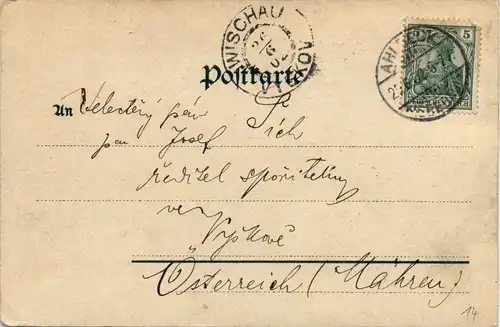 WISCHAU
VYŠKOV
5
Postkarte
An Velectěný pán
pan Josef Sích
ředitel spořitelny
ve
Vyškově
Österreich (Mähren)
14